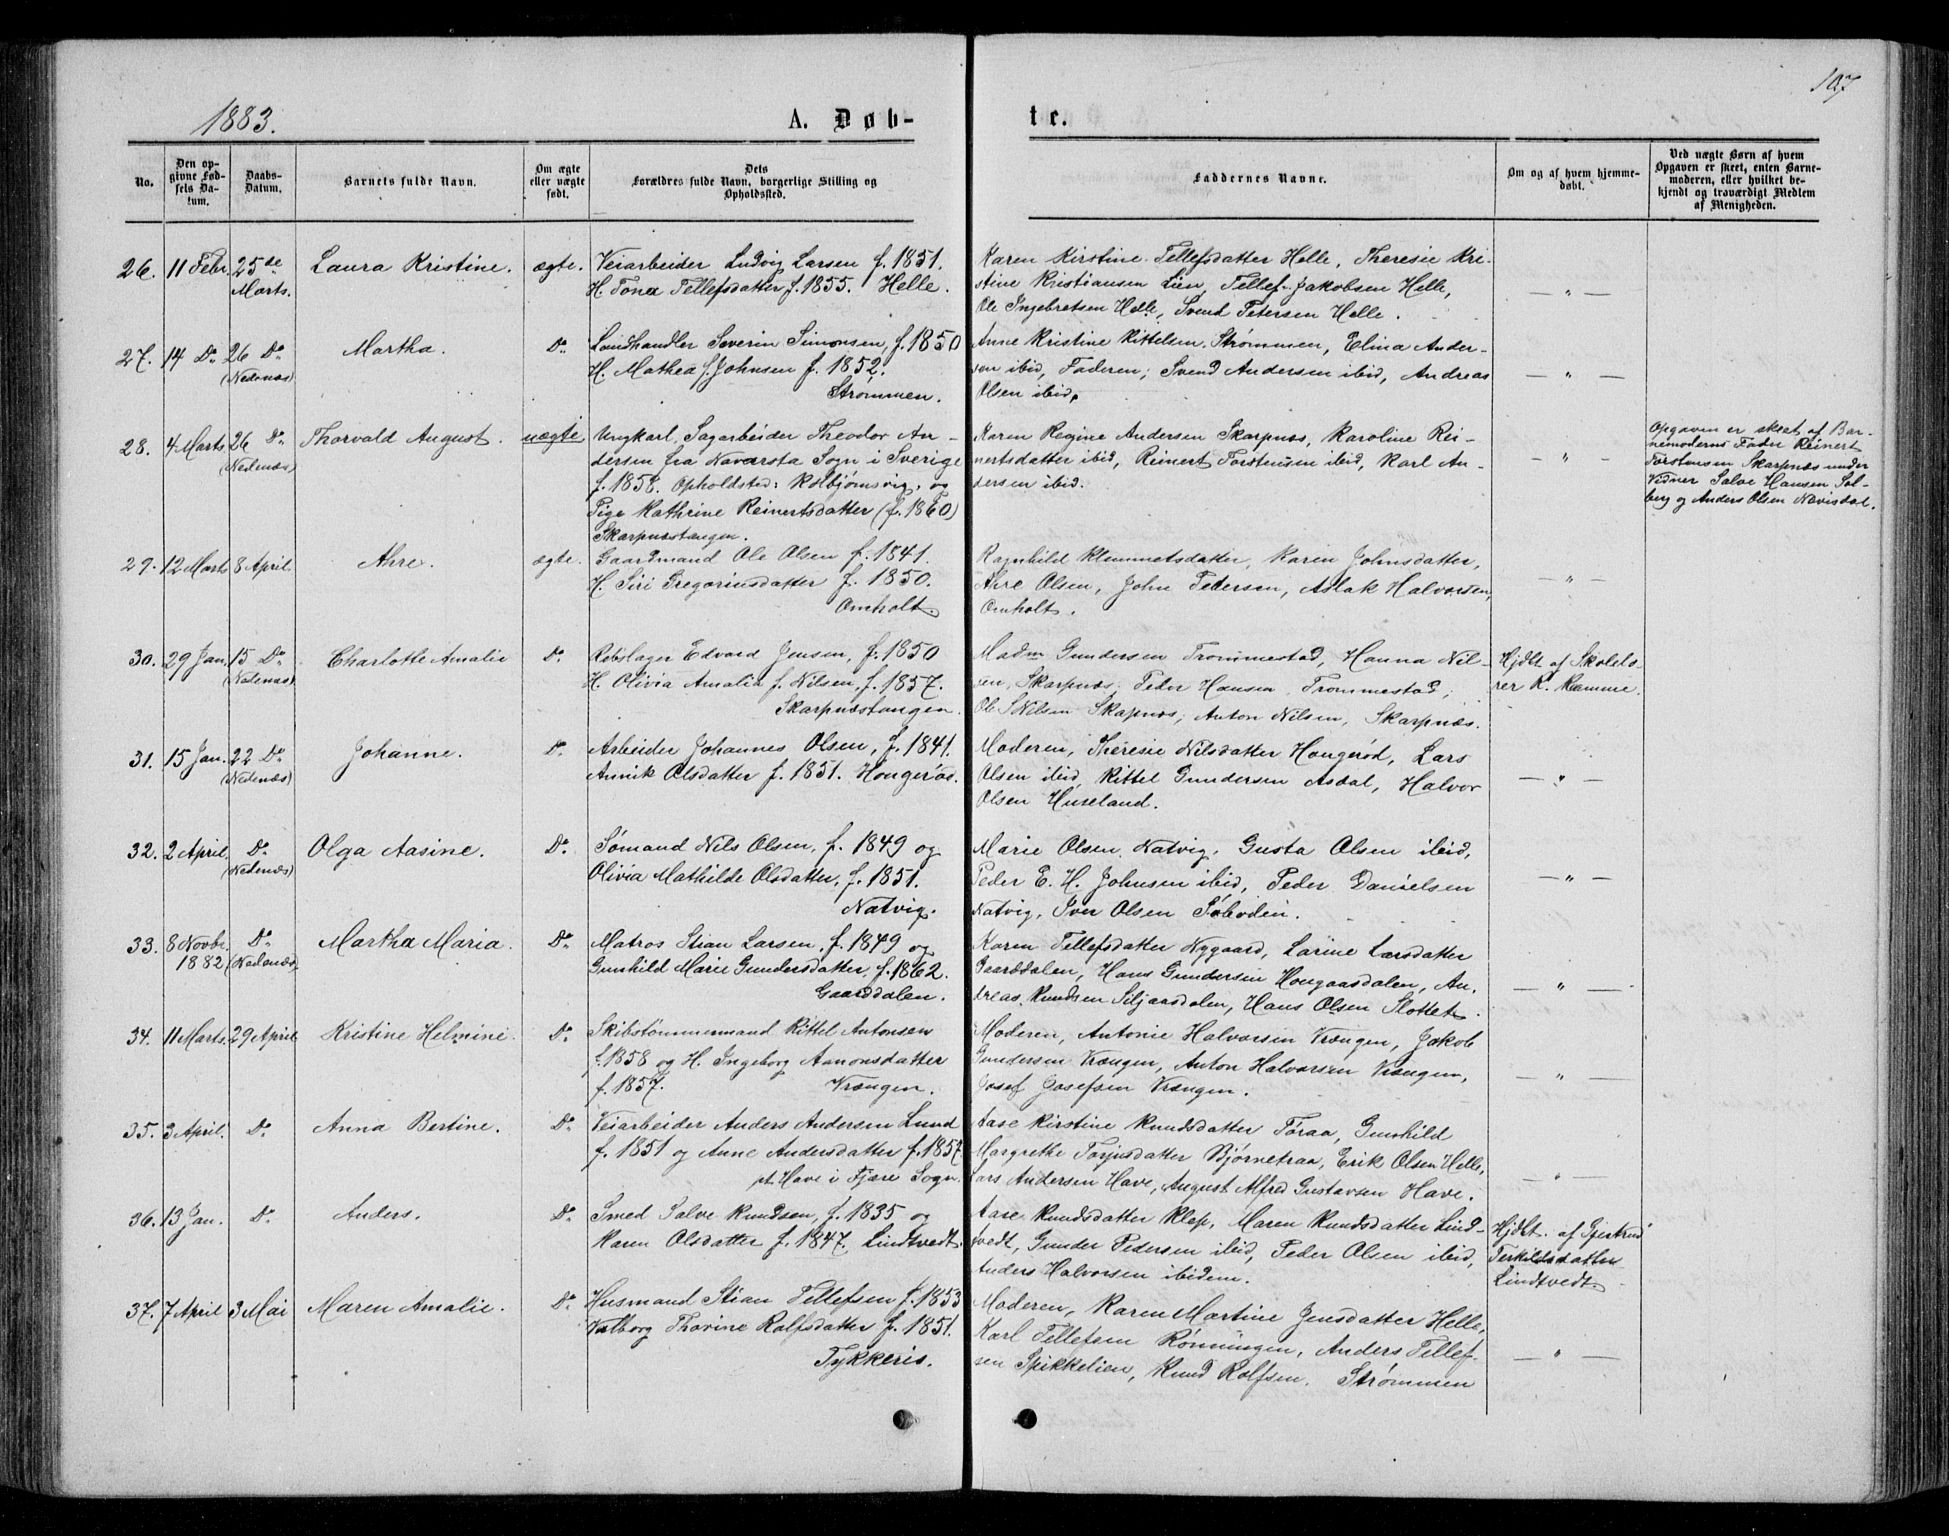 107
1883.
A. Døb-
te.
No.
Den op-
givne Fød-
sels Da-
tum.
Daabs-
Datum.
Barnets fulde Navn.
Om ægte
eller uægte
født.
Dets
Forældres fulde Navn, borgerlige Stilling og
Opholdssted.
Faddernes Navne.
Om og af hvem hjemme-
døbt.
Ved uægte Børn af hvem
Opgaven er skeet, enten Barne-
moderen, eller hvilket be-
kjendt og troværdigt Medlem
af Menigheden.
26. 11 Febr. 25de Marts. Laura Kristine. ægte.
Veiarbeider Ludvig Larsen f. 1851.
H. Tona Tellefsdatter f. 1855. Helle.
Karen Kirstine Tellefsdatter Helle, Theresie Kri-
stine Kristiansen Lien, Tellef Jakobsen Helle,
Ole Ingebretsen Helle, Svend Petersen Helle.
— " —
27. 14 Do 26 Do (Nedenæs) Martha. Do
Landhandler Severin Simonsen, f. 1850
H. Mathea f. Johnsen f. 1852.
Strømmen.
Anne Kristine Kittelsen Strømmen, Elina Ander-
sen ibid, Faderen; Svend Andersen ibid, Andreas
Olsen ibid.
— " —
28. 4 Marts 26 Do (Nedenæs) Thorvald August. uægte
Ungkarl, Sagarbeider Theodor An-
dersen fra Naversta Sogn i Sverige
f. 1858. Opholdsted: Kolbjørnsvig. og
Pige Kathrine Reinertsdatter (f. 1860)
Skarpnæstangen.
Karen Regine Andersen Skarpnæs, Karoline Rei-
nertsdatter ibid, Reinert Torstensen ibid, Karl An-
dersen ibid.
— " —
Opgaven er skeet af Bar-
nemoderns Fader Reinert
Torstensen Skarpnæs under
Vidner Salve Hansen Sol-
berg og Anders Olsen Nævisdal.
29. 12 Marts 8 April. Ahre. ægte.
Gaardmand Ole Olsen f. 1841.
H. Siri Gregoriusdatter f. 1850.
Omholt.
Ragnhild Klemmetsdatter, Karen Johnsdatter,
Ahre Olsen, John Pedersen, Aslak Halvorsen,
Omholt.
— " —
30. 29 Jan. 15 Do (Nedenæs) Charlotte Amalie Do
Rebslager Edvard Jensen, f. 1850
H. Olivia Amalia f. Nilsen, f. 1857.
Skarpnæstangen.
Madm Gundersen Trommestad, Hanna Nil-
sen, Skarpnæs; Peder Hansen Trommestad;
Ole S Nilsen Skapnæs; Anton Nilsen, Skarpnæs.
Hjdt af Skolelæ-
rer K. Ramme.
31. 15 Jan. 22 Do (Nedenæs) Johanne. Do
Arbeider Johannes Olsen, f. 1841.
Annik Olsdatter f. 1851. Hougerød.
Moderen, Theresie Nilsdatter Hougerød, Lars
Olsen ibid, Kittel Gundersen Asdal, Halvor
Olsen Huseland.
— " —
32. 2 April. Do (Nedenæs) Olga Aasine. Do
Sømand Nils Olsen, f. 1849 og
Olivia Mathilde Olsdatter, f. 1851.
Natvig.
Marie Olsen Natvig, Gusta Olsen ibid,
Peder E. H. Johnsen ibid, Peder Danielsen
Natvig, Iver Olsen Søboden.
— " —
33. 8 Novbr. 1882 Do (Nedenæs) Martha Maria. Do
Matros Stian Larsen, f. 1849 og
Gunhild Marie Gundersdatter, f. 1862.
Gaarddalen.
Karen Tellefsdatter Nygaard, Larine Larsdatter
Gaarddalen, Hans Gundersen Hougaasdalen, An-
dreas Knudsen Siljaasdalen, Hans Olsen Slottet.
— " —
34. 11 Marts. 29 April Kristine Helmine. Do
Skibstømmermand Kittel Antonsen
f. 1858 og H. Ingeborg Aanonsdatter
f. 1857. Vrængen.
Moderen, Antonie Halvorsen Vrængen, Jakob
Gundersen Vrængen, Anton Halvorsen Vrængen,
Josef Josefsen Vrængen.
— " —
35. 3 April. Do Anna Bertine. Do
Veiarbeider Anders Andersen Lund
f. 1851 og Anne Andersdatter f. 1857
pt Have i Fjære Sogn.
Aase Kirstine Knudsdatter Toraa, Gunhild
Margrethe Torjusdatter Bjørnetraa, Erik Olsen Helle,
Lars Andersen Have, August Alfred Gustavsen Have.
— " —
36. 13 Jan. Do Anders. Do
Smed Salve Knudsen, f. 1835 og
Karen Olsdatter f. 1847. Lindtvedt.
Aase Knudsdatter Klep, Maren Knudsdatter Lind-
tvedt, Gunder Pedersen ibid, Peder Olsen ibid,
Anders Halvorsen ibidem.
Hjdt. af Gjertrud
Terkildsdatter
Lindtvedt.
37. 7 April 3 Mai Maren Amalie. Do
Husmand Stian Tellefsen f. 1853
Valborg Thorine Rolfsdatter f. 1851.
Tykkeris.
Moderen, Karen Martine Jensdatter Helle,
Karl Tellefsen Rønningen, Anders Tellef-
sen Spikkelien, Knud Rolfsen. Strømmen
— " —